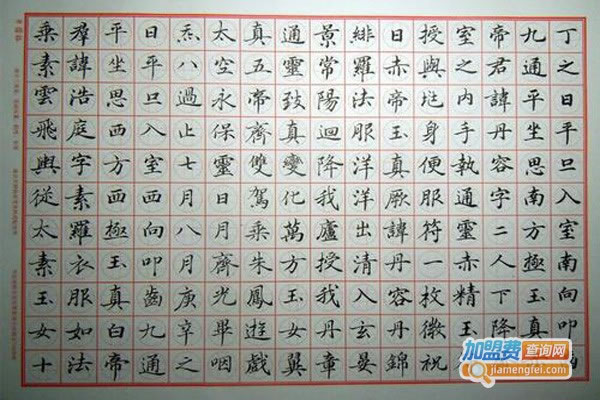 丁之日平旦入室南向叩
九通平坐思南方極玉真
帝君諱丹容字二人下降
室之內手執通靈赤精玉
授與尪身便服符一枚微祝
日赤帝玉真厥諱丹容丹錦
緋羅法服洋洋出清入玄晏
景常陽迴降我廬授我丹章
通靈致真變化萬方玉女翼
真五帝齊雙駕乘朱鳳遊戲
太空永保靈日月齊光畢咽
炁八過止七月八月庚辛之
日平旦入室西向叩齒九通
平坐思西方西極玉真白帝
羣諱浩庭字素羅衣服如法
乘素雲飛輿從太素玉女十
加盟费查询网
jiamengfei.com